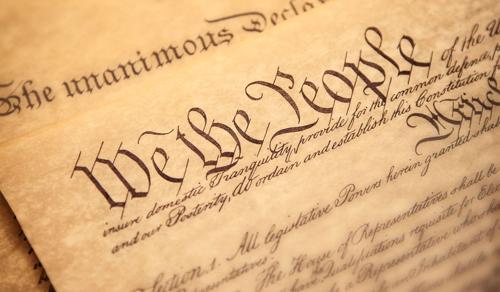 The unanimous Decla
We the People of the U
insure domestic Tranquility, provide for the common defence,
and our Posterity, do ordain and establish this Constitution
Article
Section 1. All legislative Powers herein granted shall
Representatives.
The House of Representatives shall be
Qualifications requisite for Ele
a Representative who